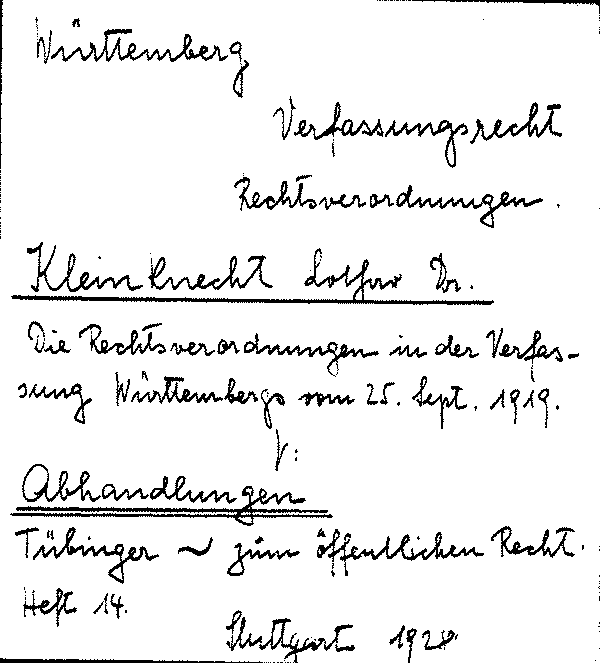 Württemberg
Verfassungsrecht
Rechtsverordnungen.
Kleinknecht Lothar Dr.
Die Rechtsverordnungen in der Verfas-
sung Württembergs vom 25. Sept. 1919.
V:
Abhandlungen
Tübinger ~ zum öffentlichen Recht.
Heft 14.
Stuttgart 1928.